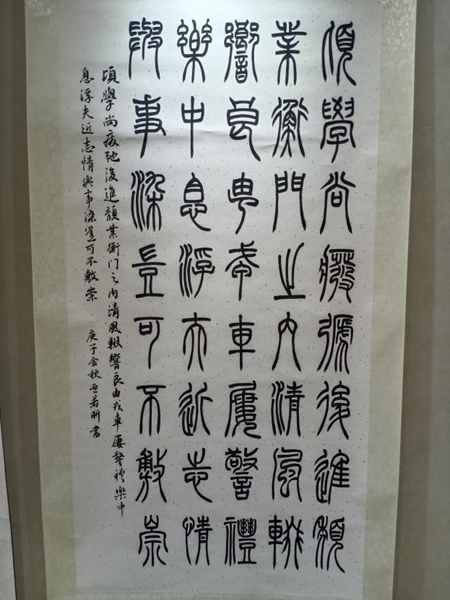 頃學尚廢弛後進頹
業衡門之內清風輟
響良由戎車屢警禮
樂中息浮夫近志情
與事染豈可不敷崇
頃學尚廢弛後進頹業衡門之內清風輟響良由戎車屢警禮樂中
息浮夫近志情與事染豈可不敷崇 庚子金秋 若昕書